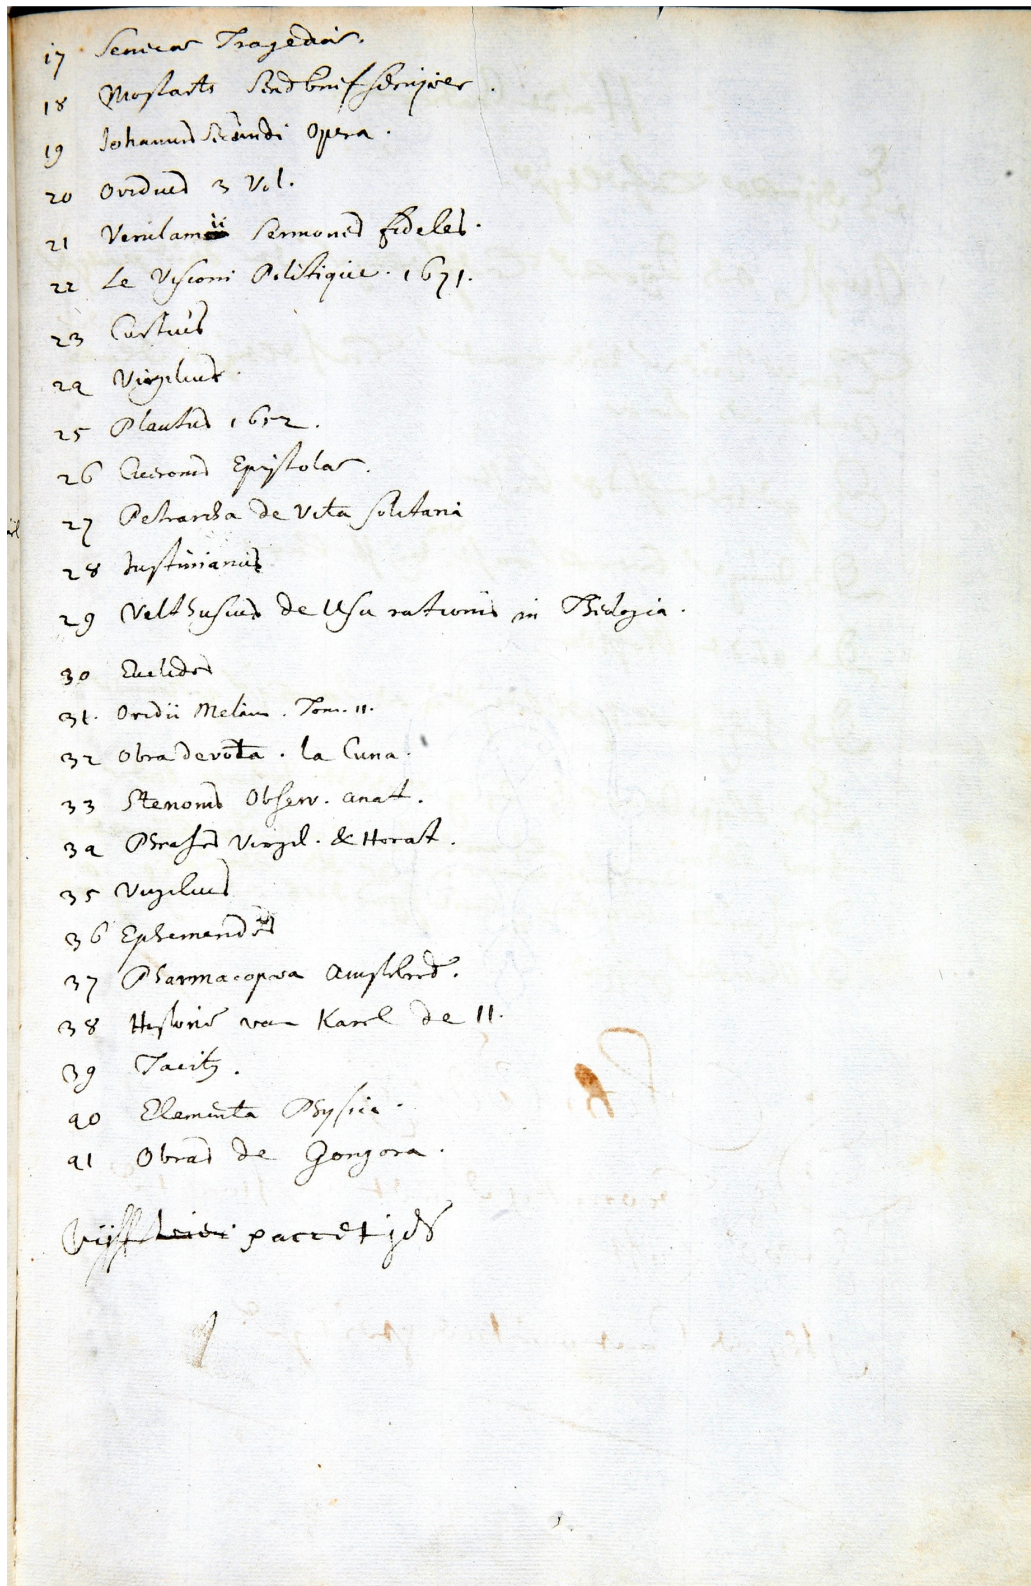 17 Senecas Tragedias.
18 Mostarts Sendbrief schrijver.
19 Johannis Secundi Opera.
20 Ovidius 3 Vol.
21 Verulamii Sermones fideles.
22 Le Visioni Politique. 1671.
23 Curtius
24 Virgilius.
25 Plautus 1652.
26 Ciceronis Epistolae.
27 Petrarcha de Vita Solitaria
28 Justinianus
29 Velthusius de Usu rationis in Theologia.
30 Euclides
31. Ovidii Metam. Tom. II.
32 Obra devota. la Cuna.
33 Stenonis Observ. anat.
34 Phrases Virgil. & Horat.
35 Virgilius
36 Ephemerides
37 Pharmacopoea Amstelred.
38 Historie van Karel de II.
39 Tacitus.
40 Elementa Physica.
41 Obras de Gongora.
Vijff paccetjes